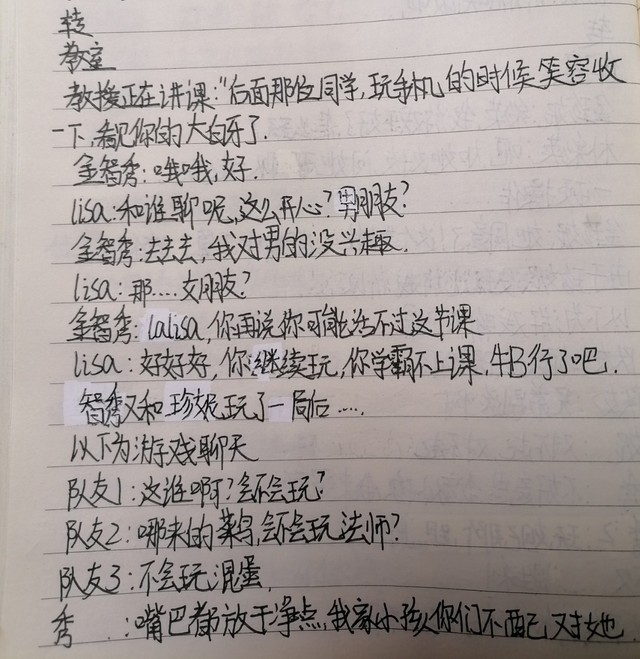 转
教室
教授正在讲课："后面那位同学,玩手机的时候笑容收
一下,看见你的大白牙了.
金智秀:哦哦,好.
lisa:和谁聊呢,这么开心?男朋友?
金智秀:去去去,我对男的没兴趣.
lisa:那....女朋友?
金智秀:lalisa,你再说你可能活不过这节课
lisa:好好好,你继续玩,你学霸不上课,牛B行了吧.
智秀又和珍妮玩了一局后....
以下为游戏聊天
队友1:这谁啊?会不会玩?
队友2:哪来的菜鸟,会不会玩法师?
队友3:不会玩混蛋.
秀 .:嘴巴都放干净点,我家小孩你们不配 对她